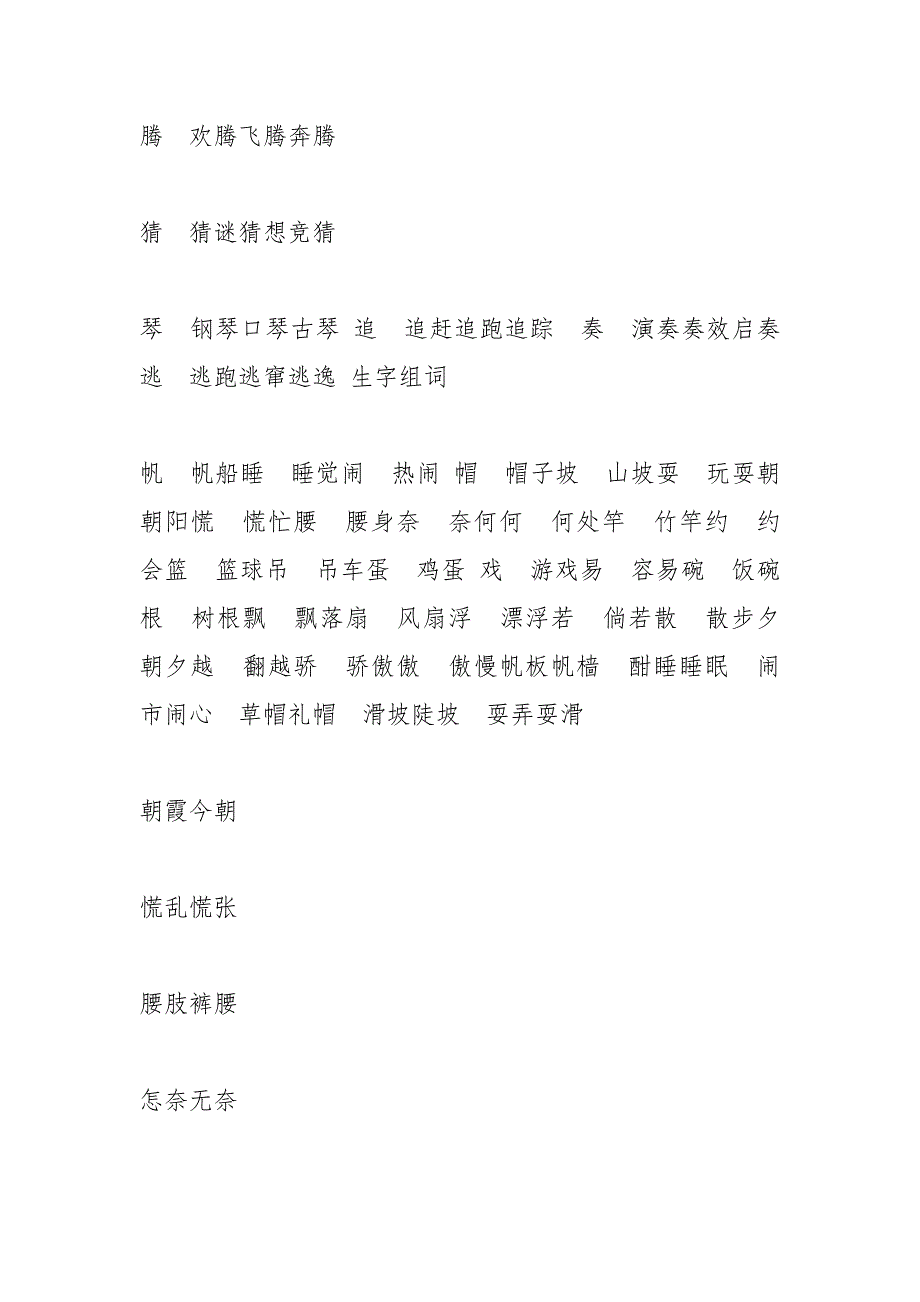 腾　欢腾飞腾奔腾
猜　猜谜猜想竞猜
琴　钢琴口琴古琴 追　追赶追跑追踪　奏　演奏奏效启奏
逃　逃跑逃窜逃逸 生字组词
帆　帆船睡　睡觉闹　热闹 帽　帽子坡　山坡耍　玩耍朝
朝阳慌　慌忙腰　腰身奈　奈何何　何处竿　竹竿约　约
会篮　篮球吊　吊车蛋　鸡蛋 戏　游戏易　容易碗　饭碗
根　树根飘　飘落扇　风扇浮　漂浮若　倘若散　散步夕
朝夕越　翻越骄　骄傲傲　傲慢帆板帆樯　酣睡睡眠　闹
市闹心　草帽礼帽　滑坡陡坡　耍弄耍滑
朝霞今朝
慌乱慌张
腰肢裤腰
怎奈无奈